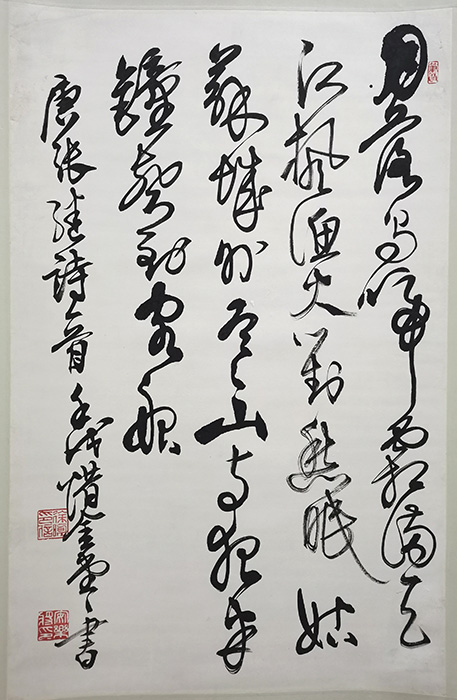 月落烏啼霜滿天
江楓漁火對愁眠姑
蘇城外寒山寺夜半
鐘聲到客船
唐張繼詩一首壬戌書